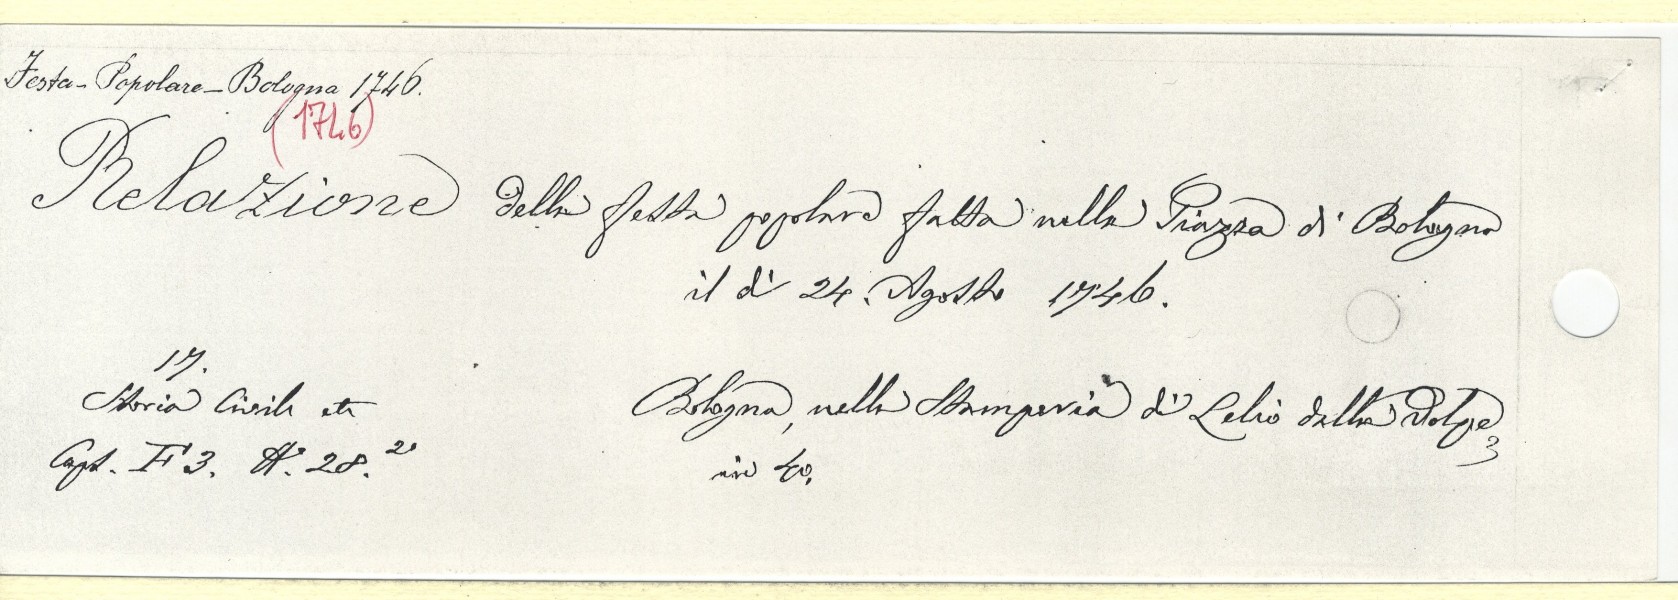 Festa - Popolare - Bologna 1746.
(1746)
Relazione della festa popolare fatta nella Piazza di Bologna
il dì 24. Agosto 1746.
17.
Storia Civile etc
Caps. F 3. N.° 28.
Bologna, nella Stamperia di Lelio dalla Volpe
in 4°.